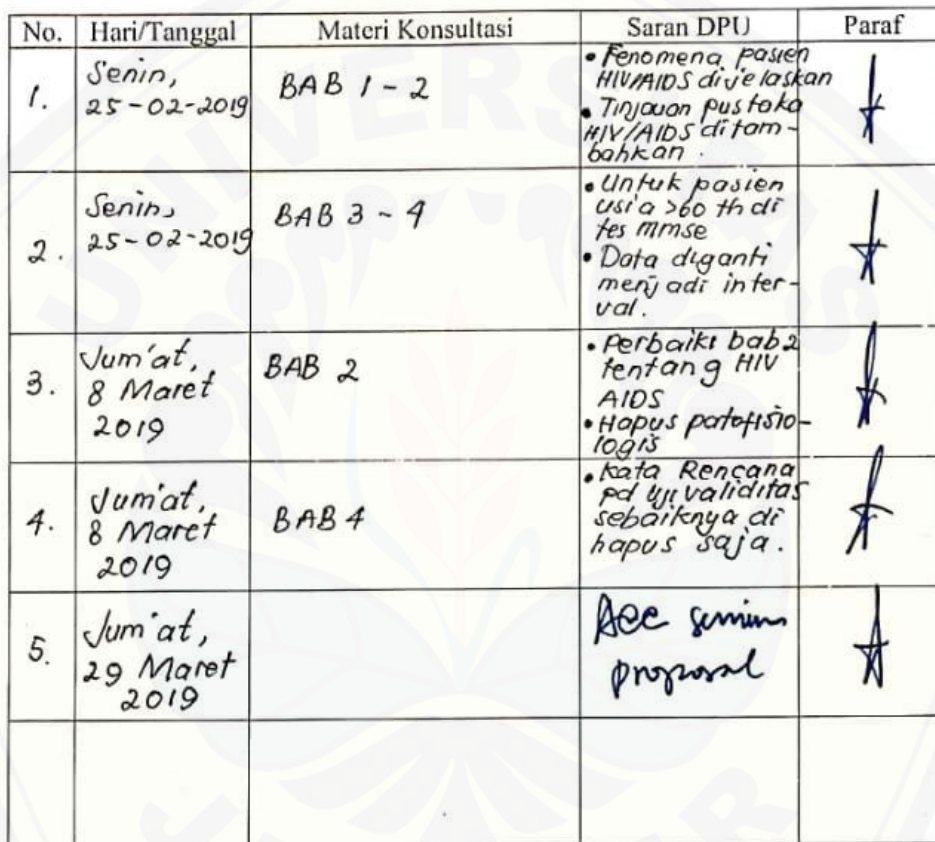 No. Hari/Tanggal Materi Konsultasi Saran DPU Paraf
1. Senin, 25-02-2019 BAB 1 - 2
• Fenomena pasien
HIV/AIDS dijelaskan
• Tinjauan pustaka
HIV/AIDS ditam-
bahkan.
2. Senin, 25-02-2019 BAB 3 - 4
• Untuk pasien
usia >60 th di
tes mmse
• Data diganti
menjadi inter-
val.
3. Jum'at, 8 Maret 2019 BAB 2
• Perbaiki bab 2
tentang HIV
AIDS
• Hapus patofisio-
logis
4. Jum'at, 8 Maret 2019 BAB 4
• Kata Rencana
pd uji validitas
sebaiknya di
hapus saja.
5. Jum'at, 29 Maret 2019
Acc
proposal
UNIVERSITAS